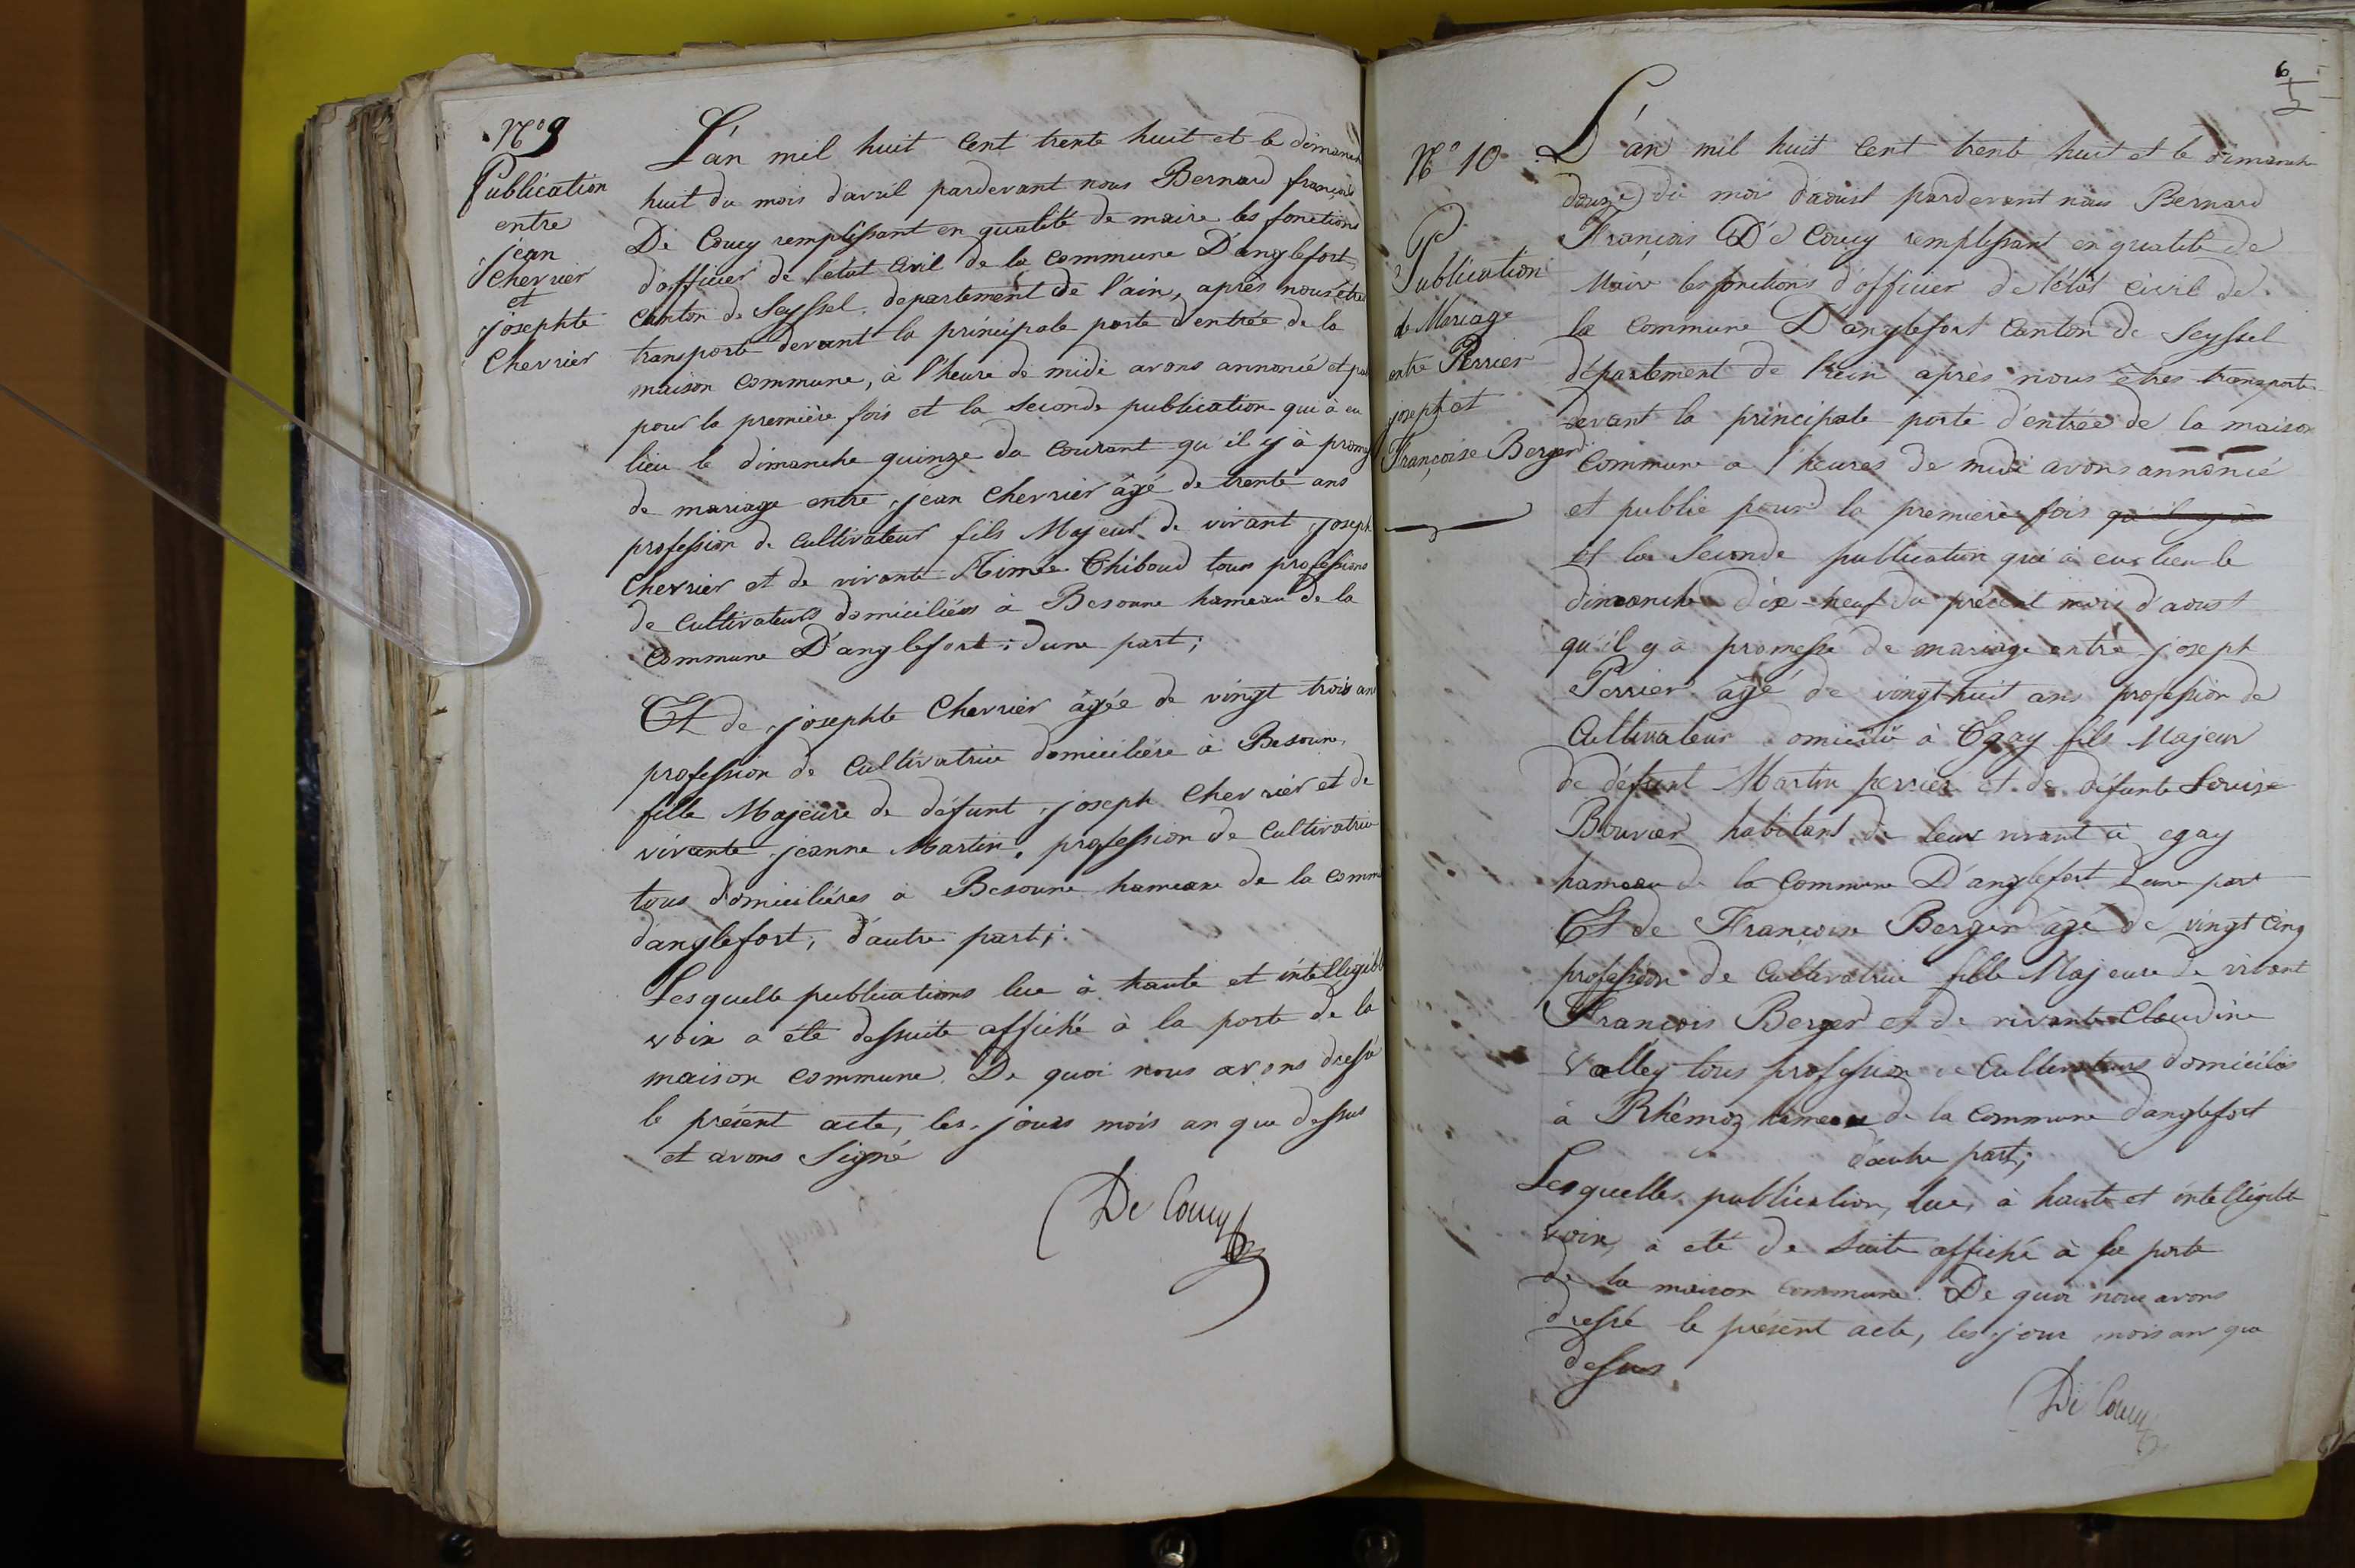 N° 9
Publication
entre
jean
Chevrier
et
josephte
Chevrier
L'an mil huit Cent trente huit et le dimanch
huit du mois d'avril pardevant nous Bernard françois
De Coucy remplissant en qualité de maire les fonctions
d'officier de l'état Civil de la Commune D'anglefort
Canton de Seyssel, departement de l'ain, aprés nous être
transporté devant la principale porte d'entrée de la
maison Commune, à l'heure de midi avons annoncé et pub
pour la première fois et la Seconde publication qui à eu
lieu le dimanche quinze du Courant qu'il y à prome
de mariage entre jean Chevrier âgé de trente ans
profession de Cultivateur fils Majeur de vivant joseph
Chevrier et de vivante Aimée Thiboud tous professions
de Cultivateurs domiciliés à Besonne hameau de la
Commune D'anglefort; d'une part;
Et de josephte Chevrier âgée de vingt trois an
profession de Cultivatrice domiciliére à Besonne,
fille Majeure de défunt joseph Chevrier et de
vivante jeanne Martin, profession de Cultivatrice
tous domiciliéres à Besonne hameau de la Comm
d'anglefort; d'autre part;
Lesquelle publications lue à haute et intelligibl
voix a été dessuite affiché à la porte de la
maison commune. De quoi nous avons dressé
le présent acte, les jours mois an que dessus
et avons Signé
De Coucy
6
N° 10
Publication
de Mariage
entre Perrier
joseph et
Françoise Berger
L'an mil huit Cent trente huit et le dimanche
douze du mois d'aoust pardevant nous Bernard
François De Coucy remplissant en qualité de
Maire les fonctions d'officier de l'état civil de
la Commune D'anglefort Canton de Seyssel
département de l'ain après nous êtres transporté
devant la principale porte d'entrée de la maison
Commune a l'heures de midi avons annoncé
et publié pour la première fois qu'il y à
et la Seconde publication qui à eus lieu le
dimanche dix-neuf du présent mois d'aoust
qu'il y a promesse de mariage entre joseph
Perrier âgé de vingt-huit ans profession de
Cultivateur domicilié à Egay fils Majeur
de défunt Martin perrier et de défunte Louise
Bouvier habitant de leur vivant à egay
hameau de la Commune D'anglefort d'une part
Et de Françoise Berger agé de vingt Cinq
profession de Cultivatrice fille Majeure de vivant
François Berger et de vivante Claudine
Valley tous profession de Cultivateurs domiciliés
à Rhémoz hameau de la Commune d'anglefort
d'autre part;
Lesquelles publication, lue, à haute et intelligible
voix, à eté de suite affiché à la porte
de la maison Commune. De quoi nous avons
dressé le présent acte, les jour mois an que
dessus
De Coucy